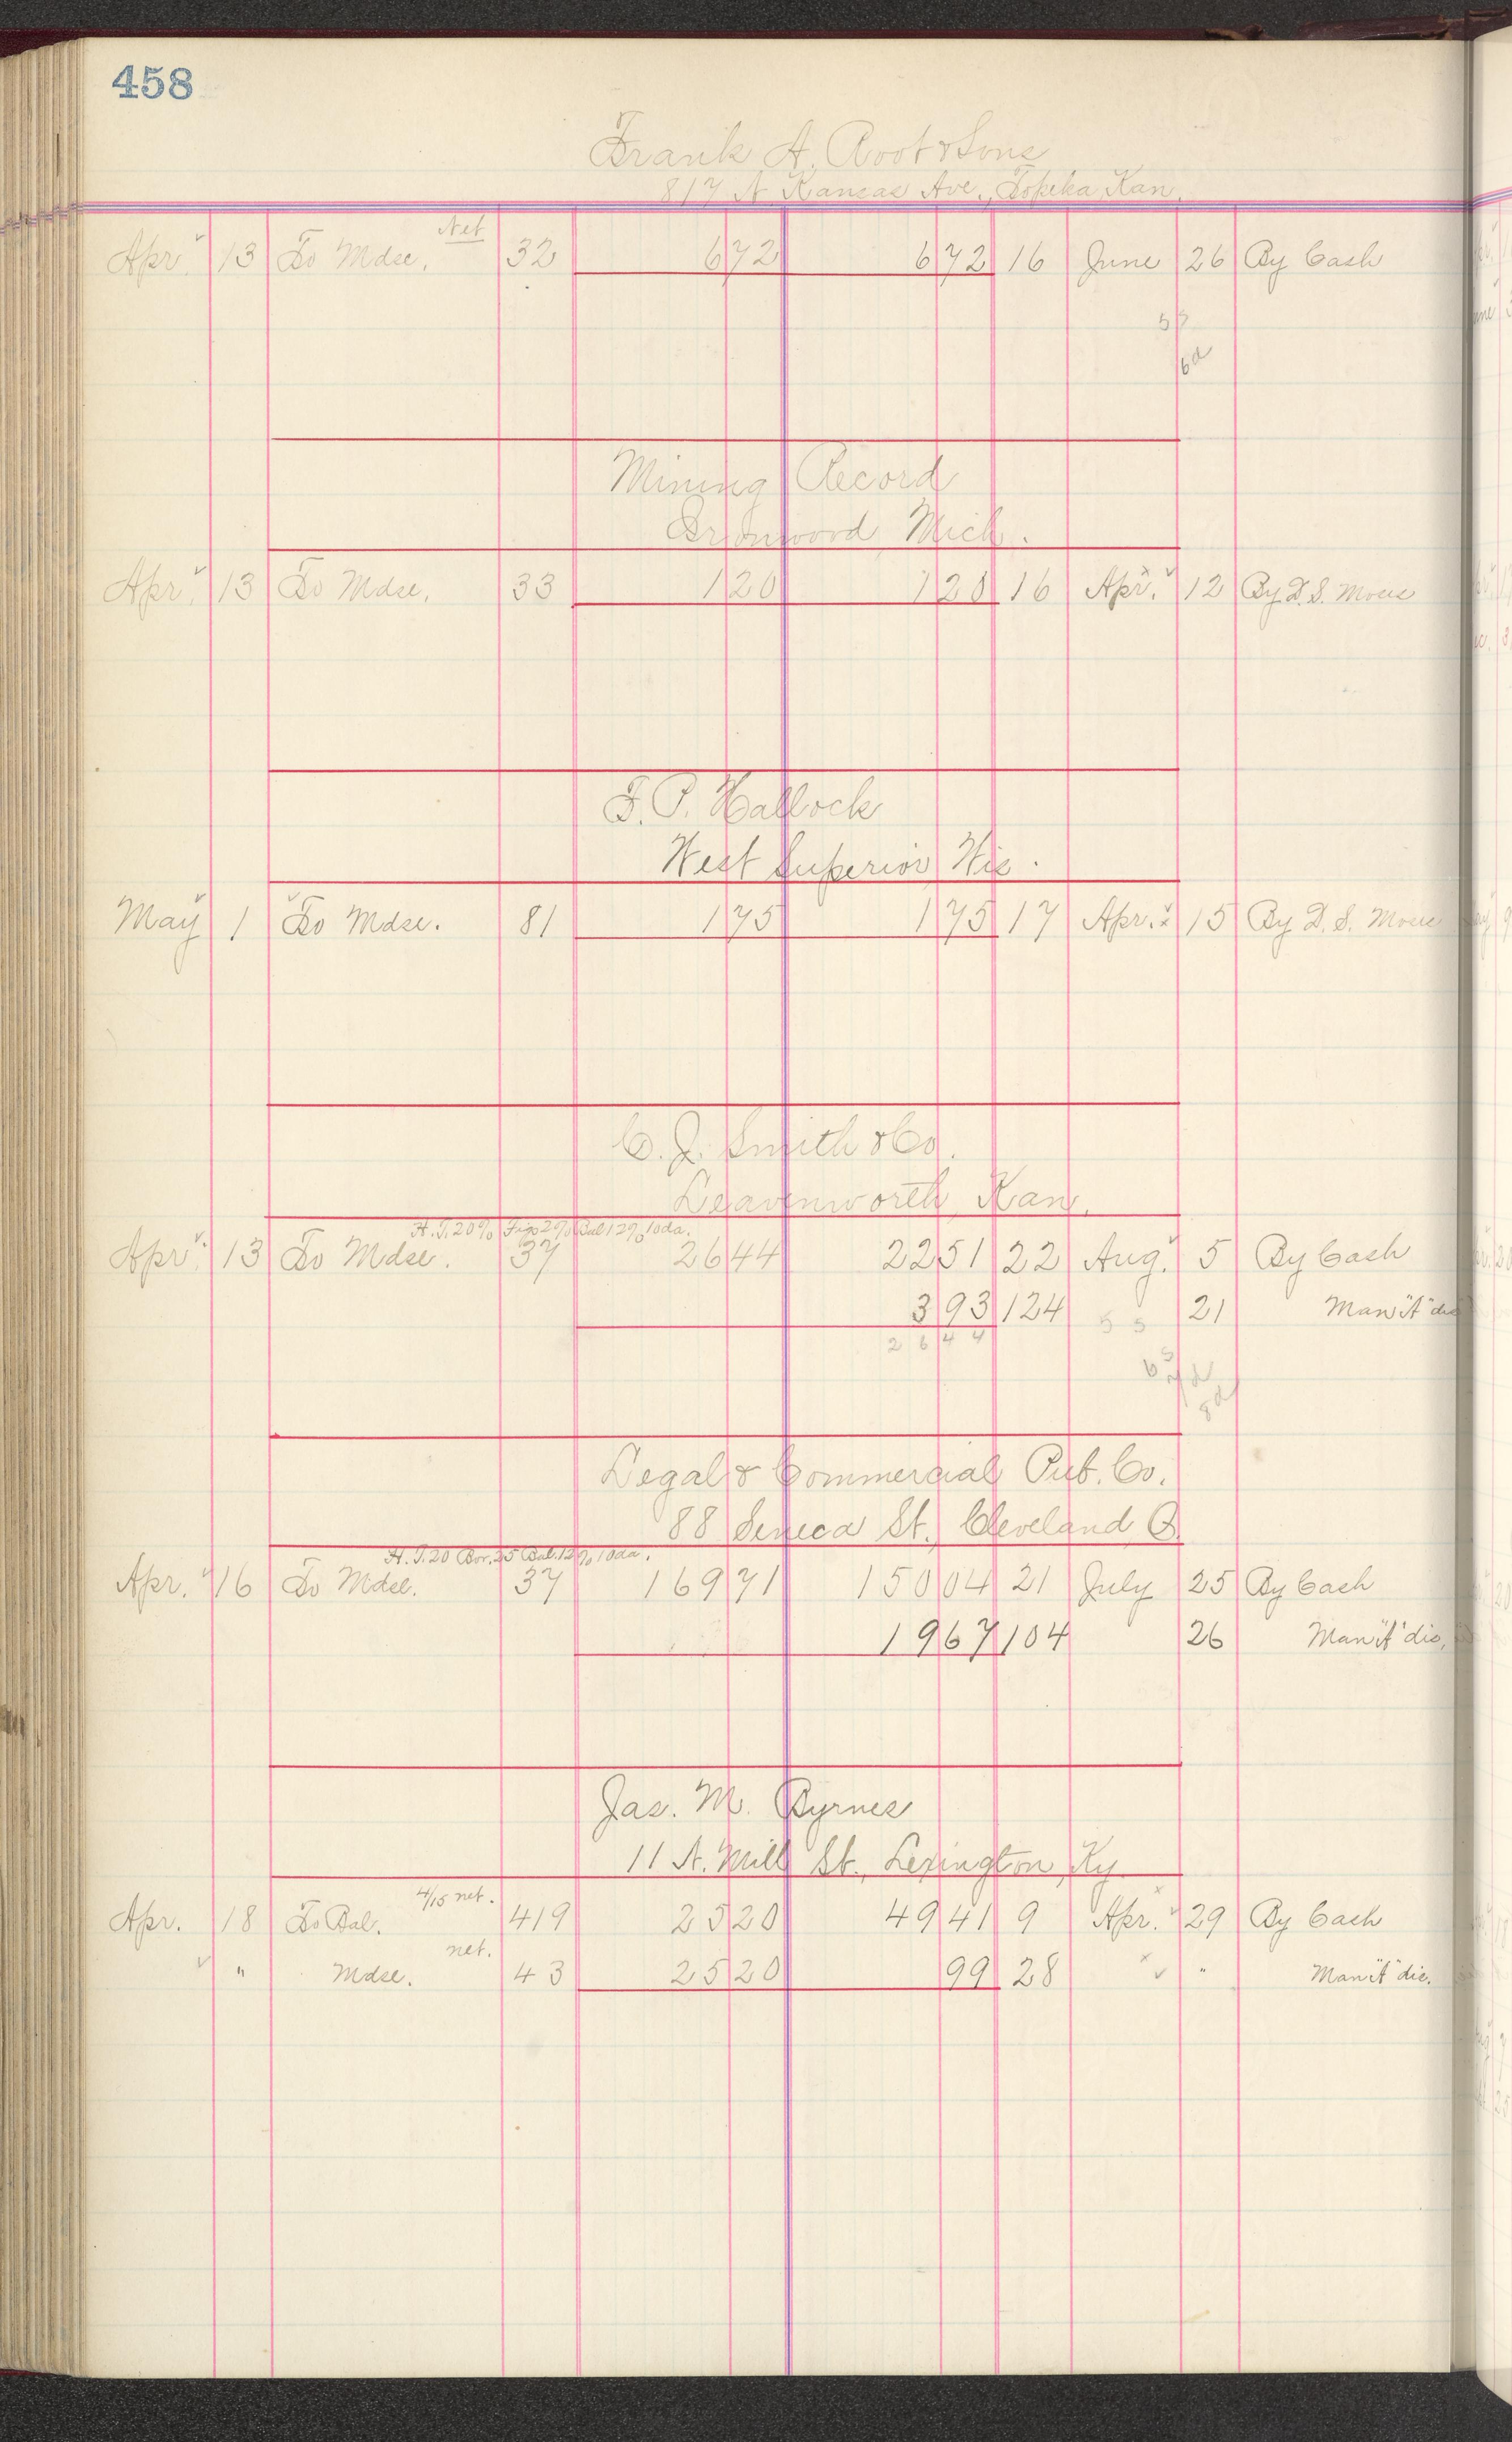 458
Frank A. Root & Sons
817 N. Kansas Ave., Topeka, Kan.
Net
Apr. 13 To Mdse. 32 6 72 6 72 16 June 26 By Cash
Mining Record
Ironwood, Mich.
Apr. 13 To Mdse. 33 1 20 1 20 16 Apr. 12 By D. S. Mous
F. P. Hallock
West Superior, Wis.
May 1 To Mdse. 81 1 75 1 75 17 Apr. 15 By D. S. Mous
C. J. Smith & Co.
Leavenworth, Kan.
H. T. 20% Figs 2% Bal 12% 10 da.
Apr. 13 To Mdse. 37 26 44 22 51 22 Aug. 5 By Cash
3 93 124 21 Man "A" dis
26 44
Legal & Commercial Pub. Co.
88 Seneca St., Cleveland, O.
H. T. 20 Bor. 25 Bal. 12% 10 da.
Apr. 16 To Mdse. 37 169 71 150 04 21 July 25 By Cash
19 67 104 26 Man "A" dis.
Jas. M. Byrnes
11 N. Mill St., Lexington, Ky.
4/15 net.
Apr. 18 To Bal. 419 25 20 49 41 9 Apr. 29 By Cash
net.
" Mdse. 43 25 20 99 28 " Man "A" dis.